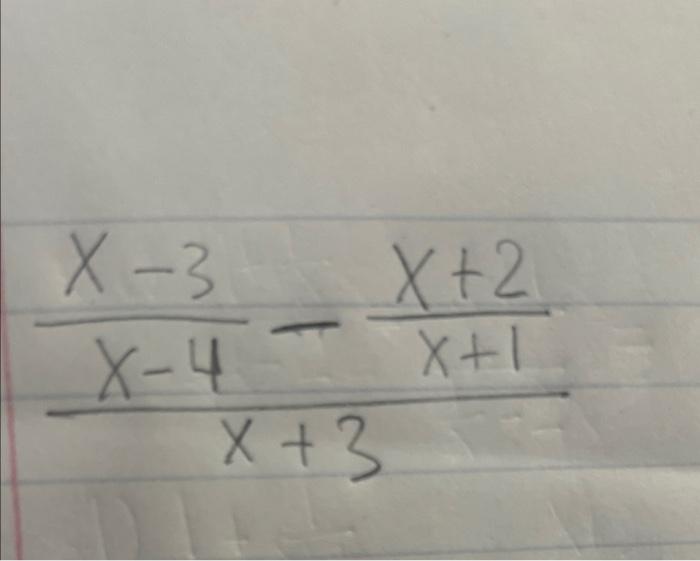 x - 3   x + 2
─── − ───
x - 4   x + 1
x + 3